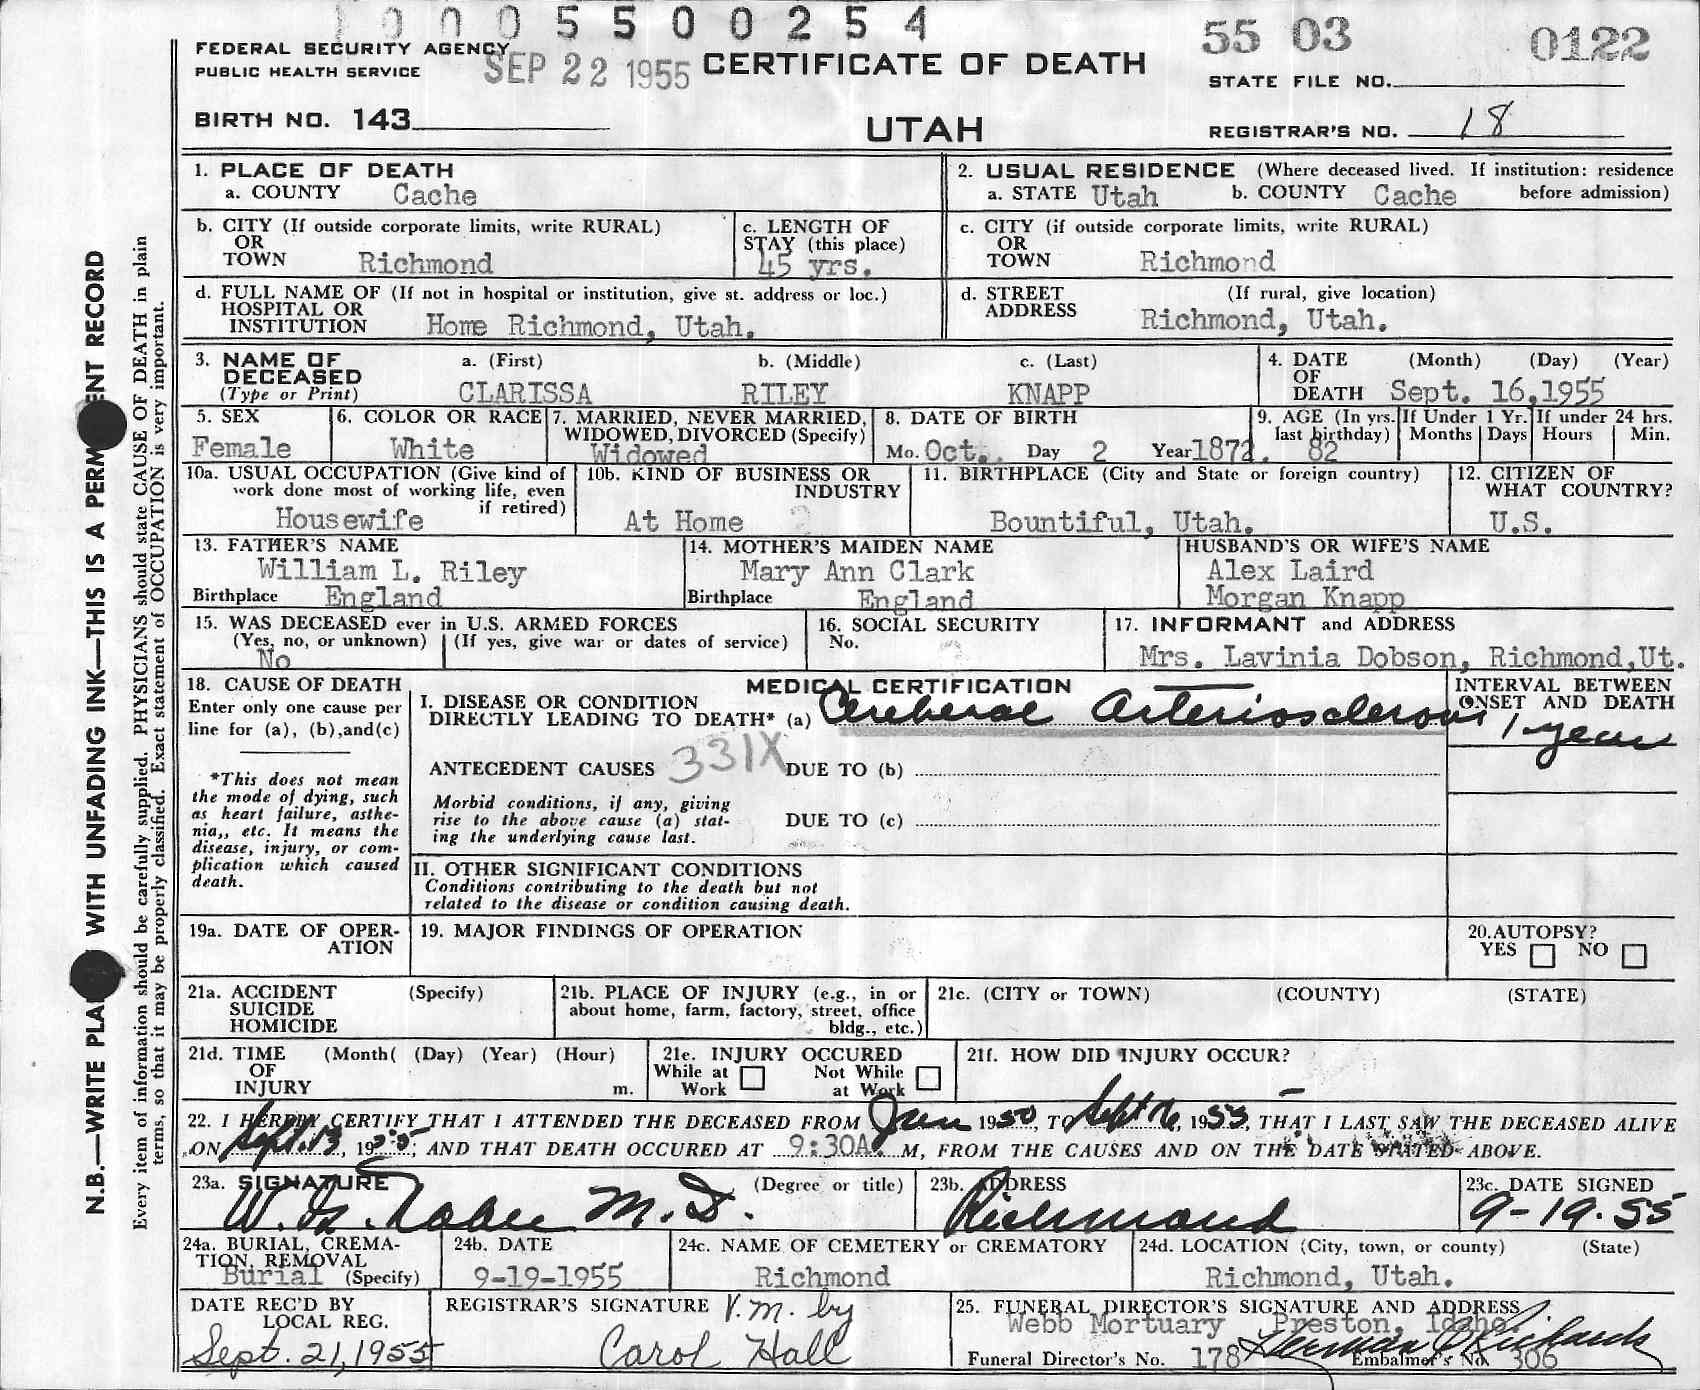 1 0 0 0 5 5 0 0 2 5 4
55 03
0122
FEDERAL SECURITY AGENCY
PUBLIC HEALTH SERVICE
SEP 22 1955
CERTIFICATE OF DEATH
STATE FILE NO.
BIRTH NO. 143
UTAH
REGISTRAR'S NO. 18
1. PLACE OF DEATH
a. COUNTY Cache
2. USUAL RESIDENCE (Where deceased lived. If institution: residence
a. STATE Utah b. COUNTY Cache before admission)
b. CITY (If outside corporate limits, write RURAL)
OR
TOWN Richmond
c. LENGTH OF
STAY (this place)
45 yrs.
c. CITY (if outside corporate limits, write RURAL)
OR
TOWN Richmond
d. FULL NAME OF (If not in hospital or institution, give st. address or loc.)
HOSPITAL OR
INSTITUTION Home Richmond, Utah.
d. STREET (If rural, give location)
ADDRESS Richmond, Utah.
3. NAME OF a. (First) b. (Middle) c. (Last)
DECEASED
(Type or Print) CLARISSA RILEY KNAPP
4. DATE (Month) (Day) (Year)
OF
DEATH Sept. 16,1955
5. SEX
Female
6. COLOR OR RACE
White
7. MARRIED, NEVER MARRIED,
WIDOWED, DIVORCED (Specify)
Widowed
8. DATE OF BIRTH
Mo. Oct. Day 2 Year 1872.
9. AGE (In yrs.
last birthday)
82
If Under 1 Yr.
Months Days
If under 24 hrs.
Hours Min.
10a. USUAL OCCUPATION (Give kind of
work done most of working life, even
if retired)
Housewife
10b. KIND OF BUSINESS OR
INDUSTRY
At Home
11. BIRTHPLACE (City and State or foreign country)
Bountiful, Utah.
12. CITIZEN OF
WHAT COUNTRY?
U.S.
13. FATHER'S NAME
William L. Riley
Birthplace England
14. MOTHER'S MAIDEN NAME
Mary Ann Clark
Birthplace England
HUSBAND'S OR WIFE'S NAME
Alex Laird
Morgan Knapp
15. WAS DECEASED ever in U.S. ARMED FORCES
(Yes, no, or unknown) (If yes, give war or dates of service)
No
16. SOCIAL SECURITY
No.
17. INFORMANT and ADDRESS
Mrs. Lavinia Dobson, Richmond,Ut.
18. CAUSE OF DEATH
Enter only one cause per
line for (a), (b),and(c)
*This does not mean
the mode of dying, such
as heart failure, asthe-
nia,, etc. It means the
disease, injury, or com-
plication which caused
death.
MEDICAL CERTIFICATION
I. DISEASE OR CONDITION
DIRECTLY LEADING TO DEATH* (a) Cerebral Arteriosclerosis
INTERVAL BETWEEN
ONSET AND DEATH
1 year
331X
ANTECEDENT CAUSES DUE TO (b)
Morbid conditions, if any, giving
rise to the above cause (a) stat-
ing the underlying cause last.
DUE TO (c)
II. OTHER SIGNIFICANT CONDITIONS
Conditions contributing to the death but not
related to the disease or condition causing death.
19a. DATE OF OPER-
ATION
19. MAJOR FINDINGS OF OPERATION
20.AUTOPSY?
YES NO
21a. ACCIDENT (Specify)
SUICIDE
HOMICIDE
21b. PLACE OF INJURY (e.g., in or
about home, farm, factory, street, office
bldg., etc.)
21c. (CITY or TOWN) (COUNTY) (STATE)
21d. TIME (Month( (Day) (Year) (Hour)
OF
INJURY m.
21e. INJURY OCCURED
While at Not While
Work at Work
21f. HOW DID INJURY OCCUR?
22. I HEREBY CERTIFY THAT I ATTENDED THE DECEASED FROM June 1950, TO Sept 16, 1955, THAT I LAST SAW THE DECEASED ALIVE
ON Sept. 13, 1955, AND THAT DEATH OCCURED AT 9:30A. M, FROM THE CAUSES AND ON THE DATE STATED ABOVE.
23a. SIGNATURE (Degree or title)
M.D.
23b. ADDRESS
Richmond
23c. DATE SIGNED
9-19-55
24a. BURIAL, CREMA-
TION, REMOVAL
Burial (Specify)
24b. DATE
9-19-1955
24c. NAME OF CEMETERY or CREMATORY
Richmond
24d. LOCATION (City, town, or county) (State)
Richmond, Utah.
DATE REC'D BY
LOCAL REG.
Sept. 21,1955
REGISTRAR'S SIGNATURE V.M. by
Carol Hall
25. FUNERAL DIRECTOR'S SIGNATURE AND ADDRESS
Webb Mortuary Preston, Idaho.
Funeral Director's No. 178 Embalmer's No. 306
N.B.—WRITE PLA WITH UNFADING INK—THIS IS A PERM ENT RECORD
Every item of information should be carefully supplied. PHYSICIANS should state CAUSE OF DEATH in plain
terms, so that it may be properly classified. Exact statement of OCCUPATION is very important.